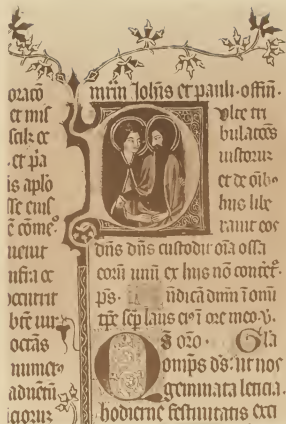 oracō
et mis
et pa
is aplo
sse eius
ē come᷒
infra oc
occurrit
octās
numer
aduētū
mrm Iohīs et pauli · offm̄ ·
Multe tri
bulatōes
iustorum
et de oībꝫ
hiis libe
rauit eos
dn̄s dn̄s custodit oīa ossa
eorū unū ex hiis nō conter᷒ ·
ps · Bn̄dicā dnm̄ ī omī
tpe sēp laus eiꝰ ī ore meo · v̄ ·
oro · Gla
Qomps ds̄ · ut nos
geminata leticia
hodierne festiuitatis exci